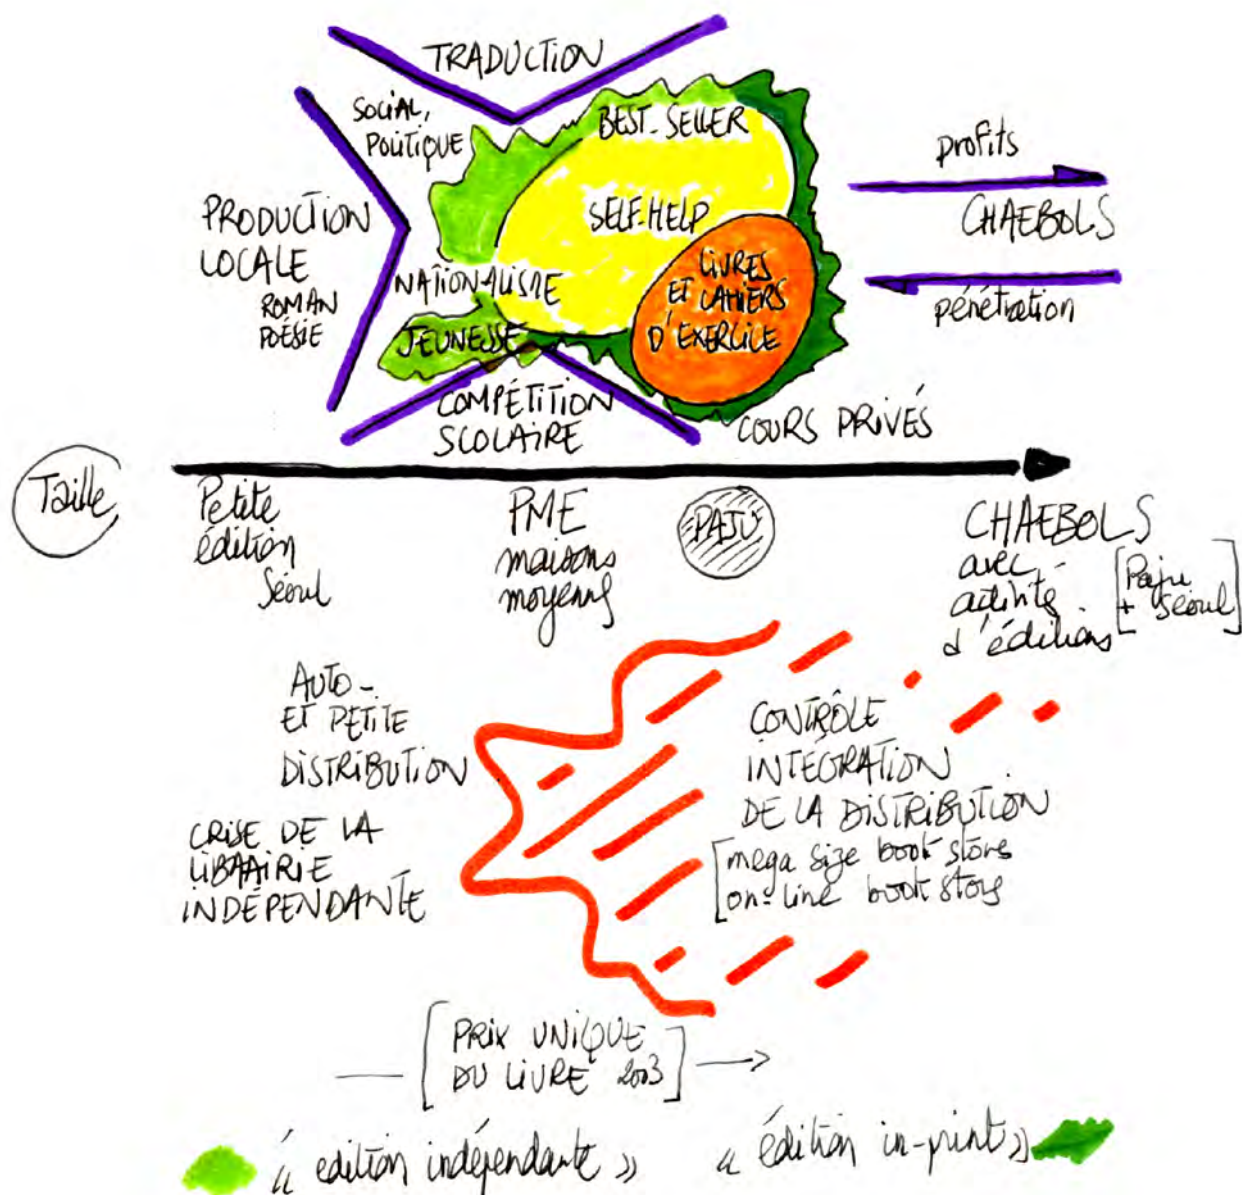 TRADUCTION
SOCIAL,
POLITIQUE
BEST-SELLER
profits
PRODUCTION
LOCALE
ROMAN
POÉSIE
SELF-HELP
CHAEBOLS
LIVRES
ET CAHIERS
D'EXERCICE
NATIONALISTE
JEUNESSE
pénétration
COMPÉTITION
SCOLAIRE
COURS PRIVÉS
Taille
Petite
édition
Séoul
PME
maisons
moyennes
PAJU
CHAEBOLS
avec
activité
d'éditions
[Paju
+ Séoul]
AUTO-
ET PETITE
DISTRIBUTION
CRISE DE LA
LIBRAIRIE
INDÉPENDANTE
CONTRÔLE
INTÉGRATION
DE LA DISTRIBUTION
[mega size book stores
on-line book stors
[PRIX UNIQUE
DU LIVRE 2003]
« édition indépendante »
« édition in-print »